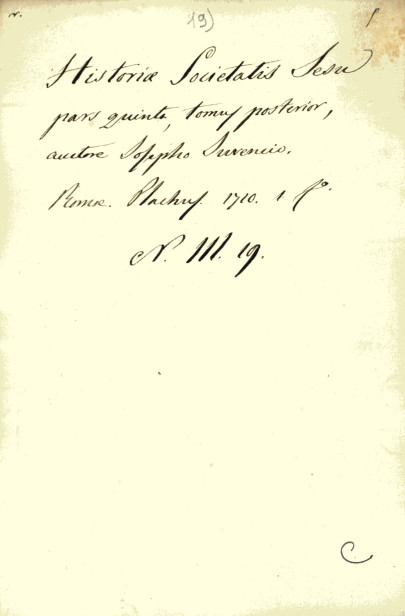 19)
Historiæ Societatis Jesu
pars quinta, tomus posterior,
auctore Josepho Juvencio.
Romæ. Plachus. 1710. 1 fo.
N. III. 19.
C